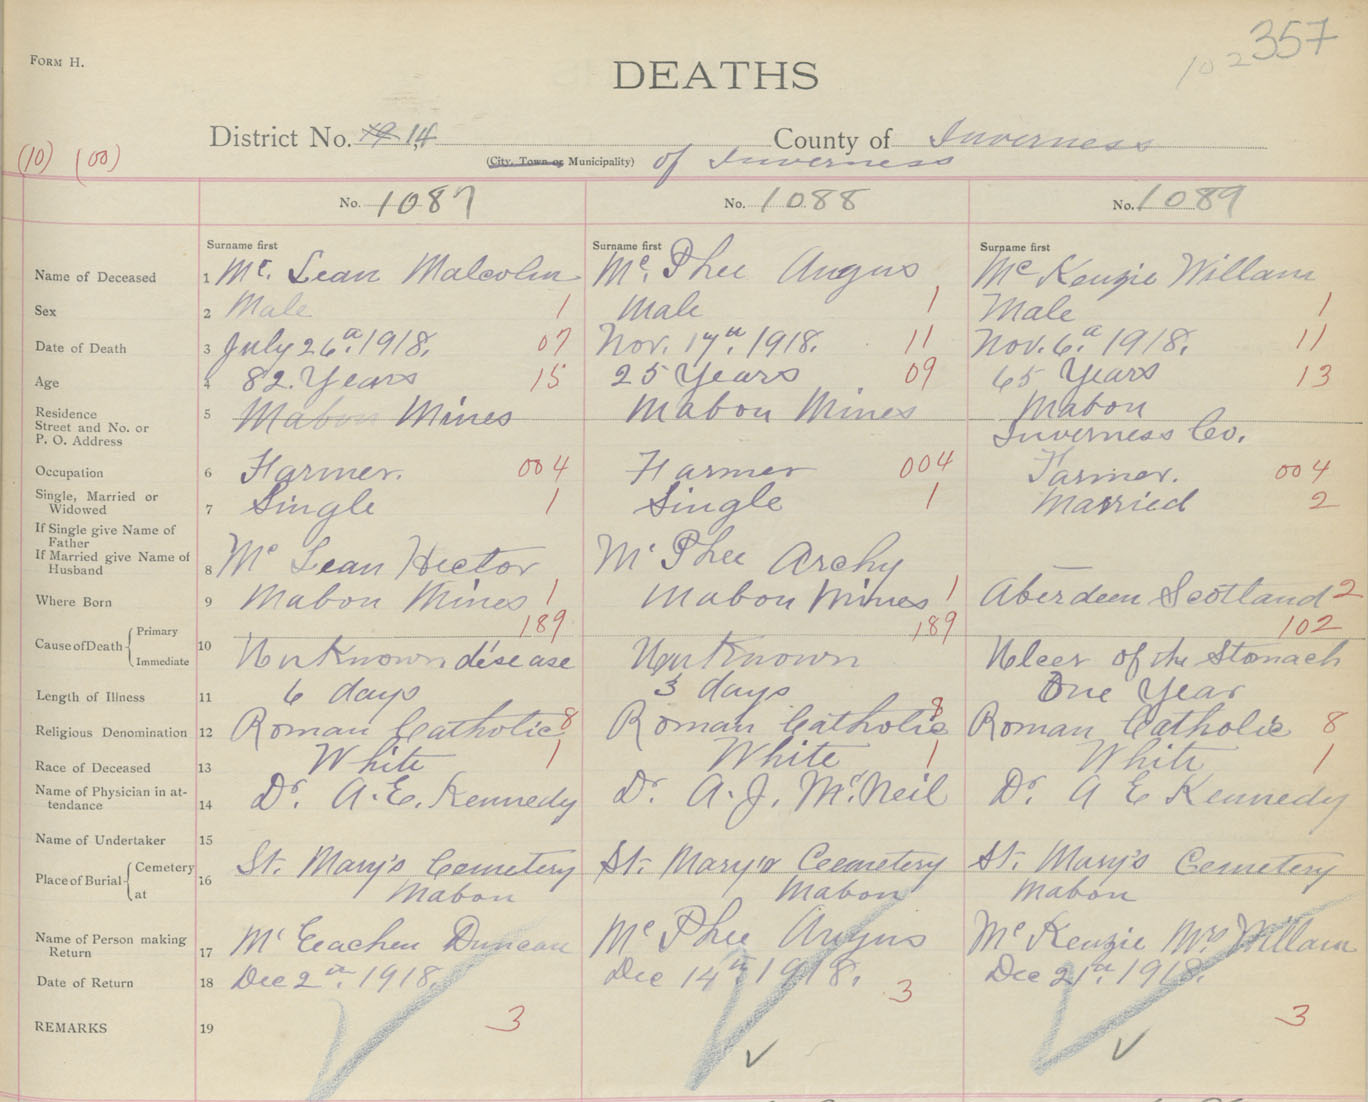 FORM H.
DEATHS
102 357
District No. 19 14 County of Inverness
(City, Town or Municipality) of Inverness
(10) (00)
No. 1087 No. 1088 No. 1089
Surname first Surname first Surname first
Name of Deceased 1 Mc. Lean Malcolm Mc. Phee Angus Mc Kenzie Willam
Sex 2 Male 1 Male 1 Male 1
Date of Death 3 July 26th. 1918. 07 Nov. 17th. 1918. 11 Nov. 6th. 1918. 11
Age 4 82. Years 15 25 Years 09 65 Years 13
Residence 5 Mabou Mines Mabou Mines Mabou
Street and No. or Inverness Co.
P. O. Address
Occupation 6 Farmer. 004 Farmer 004 Farmer. 004
Single, Married or
Widowed 7 Single 1 Single 1 Married 2
If Single give Name of
Father
If Married give Name of
Husband 8 Mc Lean Hector Mc Phee Archy
Where Born 9 Mabou Mines 1 Mabou Mines 1 Aberdeen Scotland 2
189 189 102
Cause of Death { Primary
Immediate 10 Unknown disease Unknown Ulcer of the Stomach
Length of Illness 11 6 days 3 days One Year
Religious Denomination 12 Roman Catholic 8 Roman Catholic 8 Roman Catholic 8
Race of Deceased 13 White 1 White 1 White 1
Name of Physician in at-
tendance 14 Dr. A. E. Kennedy Dr. A. J. Mc.Neil Dr. A E Kennedy
Name of Undertaker 15
Place of Burial { Cemetery 16 St. Mary's Cemetery St. Mary's Cemetery St. Mary's Cemetery
at Mabou Mabou Mabou
Name of Person making
Return 17 Mc Eachen Duncan Mc Phee Angus Mc Kenzie Mrs Willam
Date of Return 18 Dec 2nd. 1918. Dec 14th. 1918. Dec 21st. 1918.
REMARKS 19 3 3 3